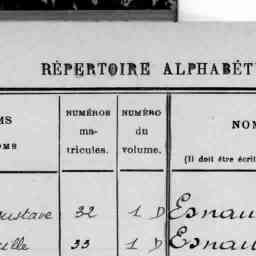 RÉPERTOIRE ALPHABÉT
MS
OMS
NUMÉROS
ma-
tricules.
NUMÉRO
du
volume.
NOM
(Il doit être écrit
ustave 32 1 D Esnau
ille 33 1 D Esnau